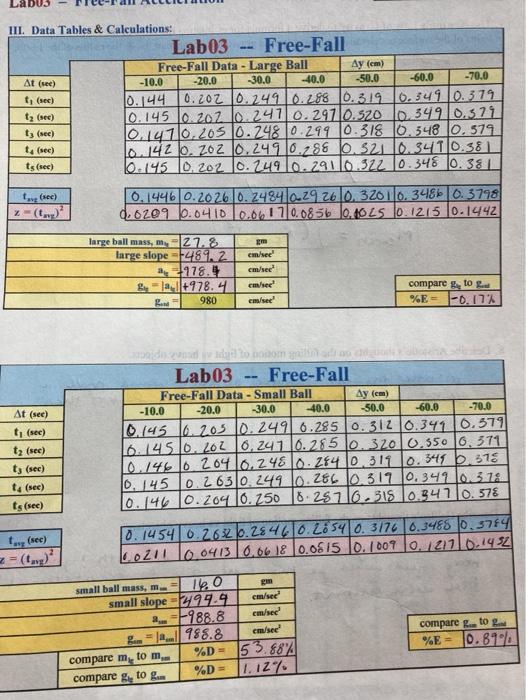 III. Data Tables & Calculations:
Lab03 -- Free-Fall
Free-Fall Data - Large Ball Δy (cm)
Δt (sec) -10.0 -20.0 -30.0 -40.0 -50.0 -60.0 -70.0
t₁ (sec) 0.144 0.202 0.249 0.288 0.319 0.349 0.379
t₂ (sec) 0.145 0.202 0.247 0.297 0.520 0.349 0.379
t₃ (sec) 0.147 0.205 0.248 0.299 0.318 0.348 0.579
t₄ (sec) 0.142 0.202 0.249 0.286 0.321 0.347 0.381
t₅ (sec) 0.145 0.202 0.249 0.291 0.322 0.348 0.381
tavg (sec) 0.1446 0.2026 0.2484 0.2926 0.3201 0.3486 0.3798
z = (tavg)² 0.0209 0.0410 0.0617 0.0856 0.1025 0.1215 0.1442
large ball mass, mlg = 27.8 gm
large slope = -489.2 cm/sec²
alg = -978.4 cm/sec²
glg = |alg| +978.4 cm/sec² compare glg to gstd
gstd = 980 cm/sec² %E = -0.17%
Lab03 -- Free-Fall
Free-Fall Data - Small Ball Δy (cm)
Δt (sec) -10.0 -20.0 -30.0 -40.0 -50.0 -60.0 -70.0
t₁ (sec) 0.145 0.203 0.249 0.285 0.312 0.349 0.379
t₂ (sec) 0.145 0.202 0.247 0.285 0.320 0.350 0.379
t₃ (sec) 0.146 0.204 0.248 0.284 0.319 0.345 0.378
t₄ (sec) 0.145 0.263 0.249 0.286 0.319 0.349 0.378
t₅ (sec) 0.146 0.204 0.250 0.287 0.318 0.347 0.578
tavg (sec) 0.1454 0.2632 0.2846 0.2854 0.3176 0.3488 0.3784
z = (tavg)² 0.0211 0.0413 0.0618 0.0815 0.1009 0.1217 0.1432
small ball mass, msm = 16.0 gm
small slope = -499.4 cm/sec²
asm = -988.8 cm/sec²
gsm = |asm| 988.8 cm/sec² compare gsm to gstd
compare mlg to msm %D = 53.88% %E = 0.89%
compare glg to gsm %D = 1.12%